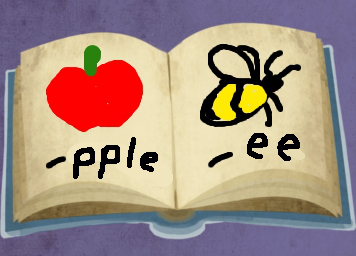 -pple
-ee